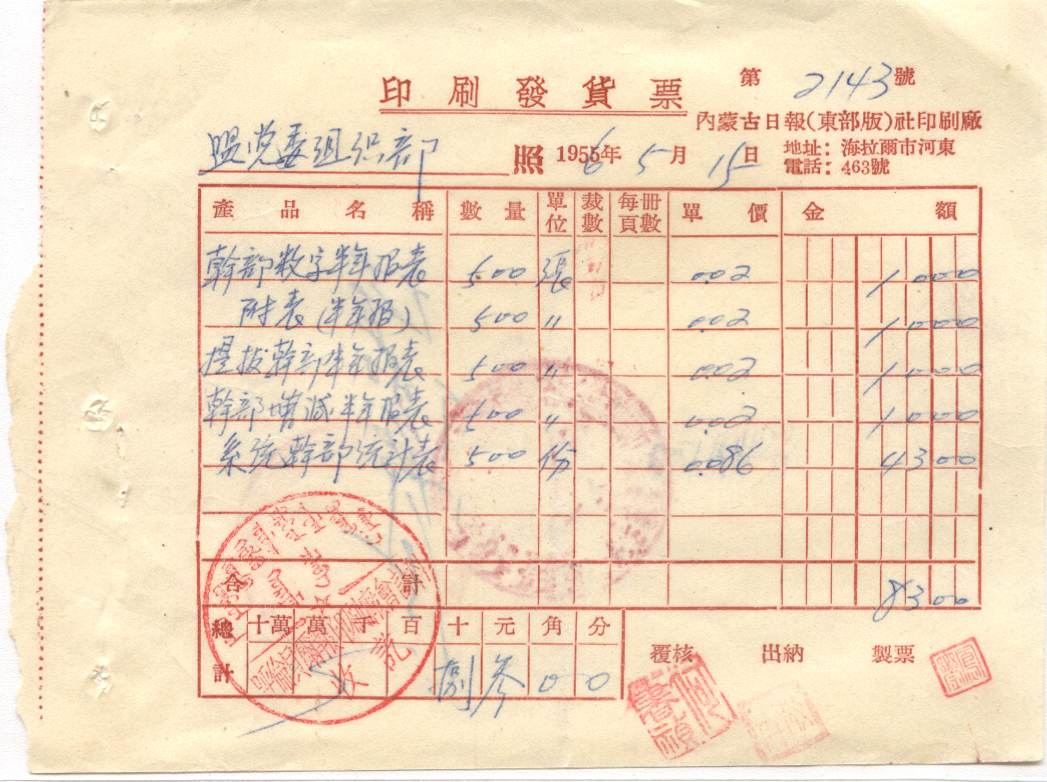 第 2143 號
印刷發貨票
內蒙古日報(東部版)社印刷廠
盟党委组织部
照 1956年 5月 15日
地址：海拉爾市河東
電話：463號
產品名稱 數量 單位 裁數 每冊頁數 單價 金額
幹部数字半年报表 500 張 0.02 1000
附表(半年报) 500 〃 0.02 1000
提拔幹部半年报表 500 〃 0.02 1000
幹部增减半年报表 500 〃 0.02 1000
系统幹部统计表 500 份 0.086 4300
合計 8300
總計 十萬 萬 千 百 十 元 角 分
捌 叁 0 0
覆核 出納 製票